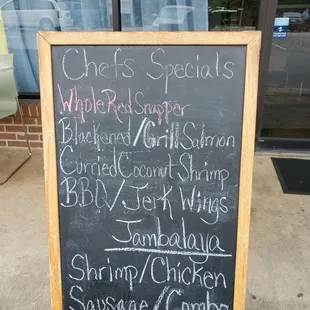 Chefs Specials
Whole Red Snapper
Blackened/Grill Salmon
Curried Coconut Shrimp
BBQ/Jerk Wings
Jambalaya
Shrimp/Chicken
Sausage/Combo